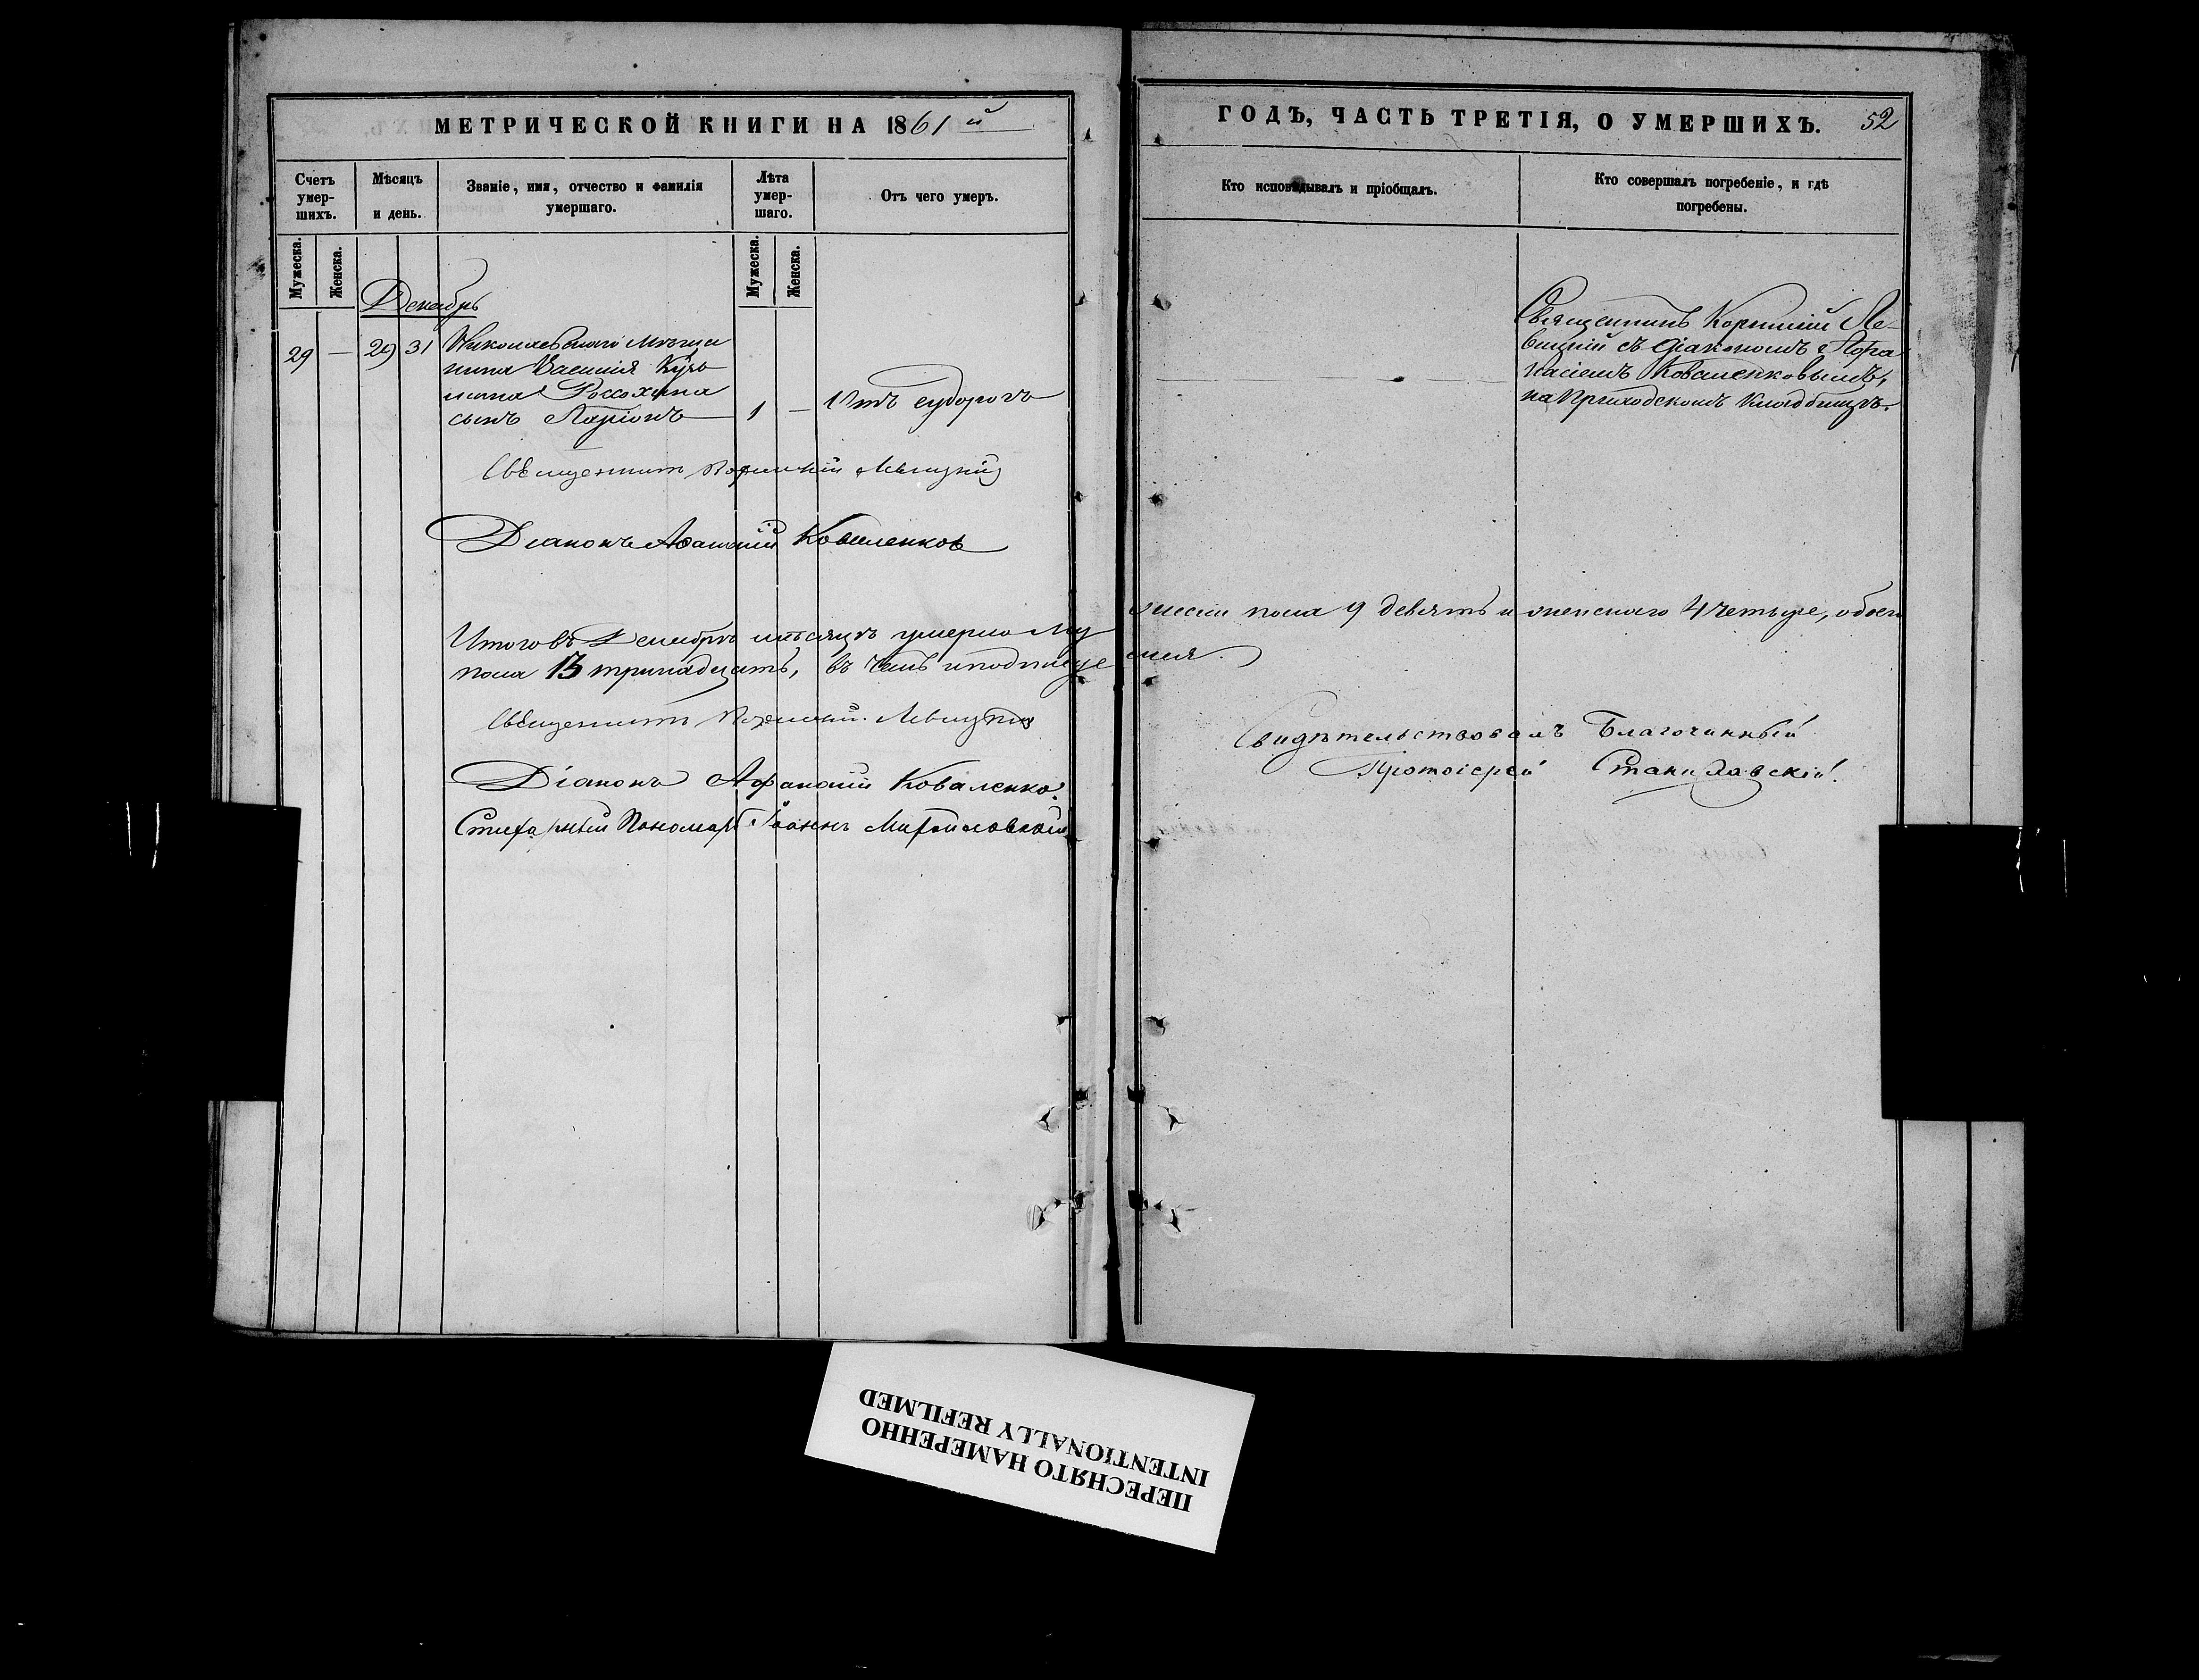 МЕТРИЧЕСКОЙ КНИГИ НА 1861й
Счетъ умер-шихъ.
Мѣсяцъ и день.
Званіе, имя, отчество и фамилія умершаго.
Лѣта умер-шаго.
Отъ чего умеръ.
Мужеска.
Женска.
Мужеска.
Женска.
Декабрь
29 — 29 31 Николаевскаго мѣща
нина Василія Кузь
мина Россохина
сынъ Ларіонъ — 1 — Отъ судорогъ
Священникъ Корнилій Левицкій
Діаконъ Афанасій Коваленков
Итого въ Декабрѣ мѣсяцѣ умерло му
пола 13 тринадцать, въ чемъ и подписуе
Священникъ Корнилій Левицкій
Діаконъ Афанасій Коваленко.
Стихарный Пономарь Іоаннъ Михайловскій
ГОДЪ, ЧАСТЬ ТРЕТІЯ, О УМЕРШИХЪ. 52
Кто исповѣдывалъ и пріобщалъ.
Кто совершалъ погребеніе, и гдѣ погребены.
Священникъ Корнилій Ле-
вицкій съ діакономъ Афа
насіемъ Коваленковымъ,
на Приходскомъ кладбищѣ.
жеска пола 9 девять и женскаго 4 четыре, обоего
мся.
Свидѣтельствовалъ Благочинный
Протоіерей Станиславскій.
ПЕРЕСНЯТО НАМЕРЕННО
INTENTIONALLY REFILMED